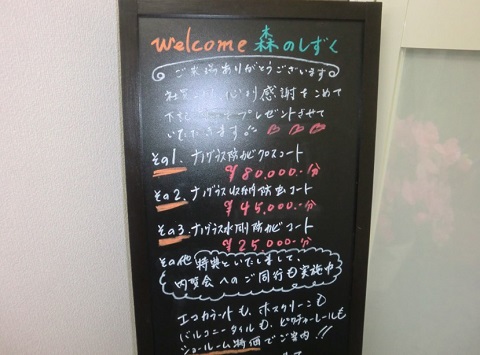 welcome 森のしずく
ご来場ありがとうございます
心より感謝をこめて
プレゼントさせて
いただきます
その1. ナノグラス防カビクロスコート
¥80,000.-分
その2. ナノグラス収納防虫コート
¥45,000.-分
その3. ナノグラス水廻防カビコート
¥25,000.-分
その他 特典といたしまして、
内覧会へのご同行も実施中
エコカラットも、ホスクリーンも
バルコニータイルも、ピクチャーレールも
ショールーム特価でご案内!!